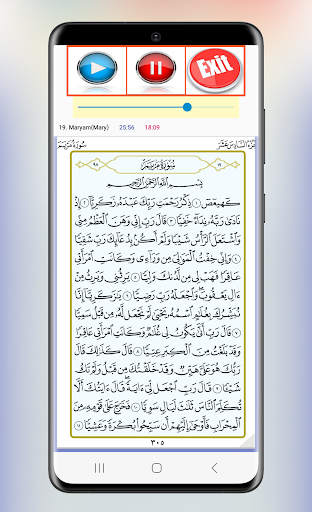 Exit
19. Maryam(Mary) 25:56 18:09
الجُزْءُ السَّادِسَ عَشَرَ سُورَةُ مَرْيَمَ
١٩ سُورَةُ مَرْيَمَ ٩٨
بِسْمِ ٱللَّهِ ٱلرَّحْمَٰنِ ٱلرَّحِيمِ
كٓهيعٓصٓ ١ ذِكْرُ رَحْمَتِ رَبِّكَ عَبْدَهُۥ زَكَرِيَّآ ٢ إِذْ
نَادَىٰ رَبَّهُۥ نِدَآءً خَفِيًّا ٣ قَالَ رَبِّ إِنِّي وَهَنَ ٱلْعَظْمُ مِنِّي
وَٱشْتَعَلَ ٱلرَّأْسُ شَيْبًا وَلَمْ أَكُنۢ بِدُعَآئِكَ رَبِّ شَقِيًّا ٤
وَإِنِّي خِفْتُ ٱلْمَوَٰلِيَ مِن وَرَآءِي وَكَانَتِ ٱمْرَأَتِي
عَاقِرًا فَهَبْ لِي مِن لَّدُنكَ وَلِيًّا ٥ يَرِثُنِي وَيَرِثُ مِنْ
ءَالِ يَعْقُوبَۖ وَٱجْعَلْهُ رَبِّ رَضِيًّا ٦ يَٰزَكَرِيَّآ إِنَّا
نُبَشِّرُكَ بِغُلَٰمٍ ٱسْمُهُۥ يَحْيَىٰ لَمْ نَجْعَل لَّهُۥ مِن قَبْلُ سَمِيًّا ٧
قَالَ رَبِّ أَنَّىٰ يَكُونُ لِي غُلَٰمٌ وَكَانَتِ ٱمْرَأَتِي عَاقِرًا
وَقَدْ بَلَغْتُ مِنَ ٱلْكِبَرِ عِتِيًّا ٨ قَالَ كَذَٰلِكَ قَالَ
رَبُّكَ هُوَ عَلَيَّ هَيِّنٌ وَقَدْ خَلَقْتُكَ مِن قَبْلُ وَلَمْ تَكُ
شَيْـًٔا ٩ قَالَ رَبِّ ٱجْعَل لِّيٓ ءَايَةًۚ قَالَ ءَايَتُكَ أَلَّا
تُكَلِّمَ ٱلنَّاسَ ثَلَٰثَ لَيَالٍ سَوِيًّا ١٠ فَخَرَجَ عَلَىٰ قَوْمِهِۦ مِنَ
ٱلْمِحْرَابِ فَأَوْحَىٰٓ إِلَيْهِمْ أَن سَبِّحُوا۟ بُكْرَةً وَعَشِيًّا ١١
٣٠٥